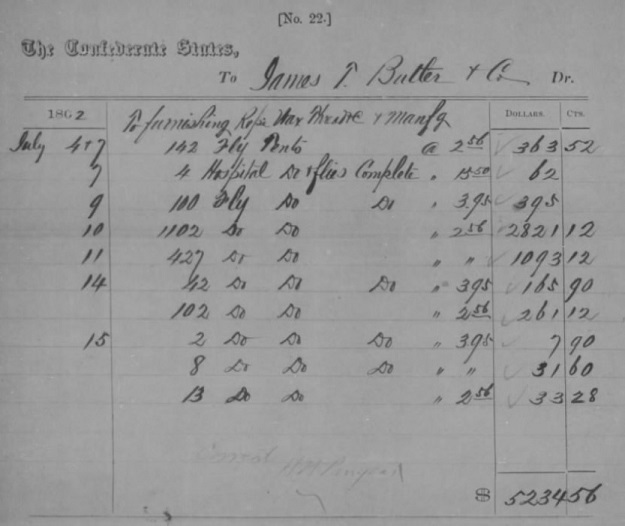 [No. 22.]
The Confederate States,
To James T. Butler & Co Dr.
1862 To furnishing Rope Wax Twine & manfg DOLLARS. CTS.
July 4+7 142 Fly Tents @ 2 56 363 52
7 4 Hospital Do & flies Complete " 15 50 62
9 100 Fly Do Do " 3.95 395
10 1102 Do Do " 2 56 2821 12
11 427 Do Do " " 1093 12
14 42 Do Do Do " 3.95 165 90
102 Do Do " 2 56 261 12
15 2 Do Do Do " 3.95 7 90
8 Do Do Do " " 31 60
13 Do Do " 2 56 33 28
Correct
$ 5234 56